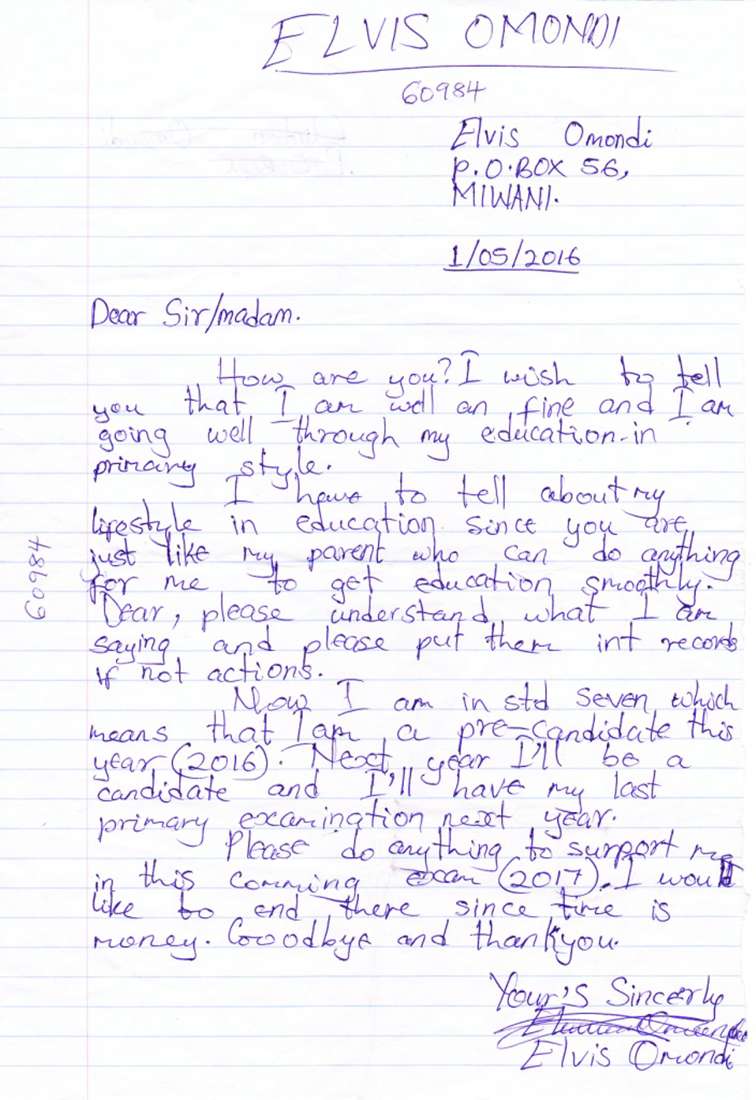 ELVIS OMONDI
60984
Elvis Omondi
P.O.BOX 56,
MIWANI.
1/05/2016
Dear Sir/madam.
How are you? I wish to tell
you that I am well an fine and I am
going well through my education in
primary style.
I have to tell about my
lifestyle in education since you are
just like my parent who can do anything
for me to get education smoothly.
Dear, please understand what I am
saying and please put them int records
if not actions.
60984
Now I am in std seven which
means that I am a pre-candidate this
year (2016). Next year I'll be a
candidate and I'll have my last
primary examination next year.
Please do anything to surport me
in this comming exam (2017). I would
like to end there since time is
money. Goodbye and thankyou.
Your's Sincerly
Elvis Omondi